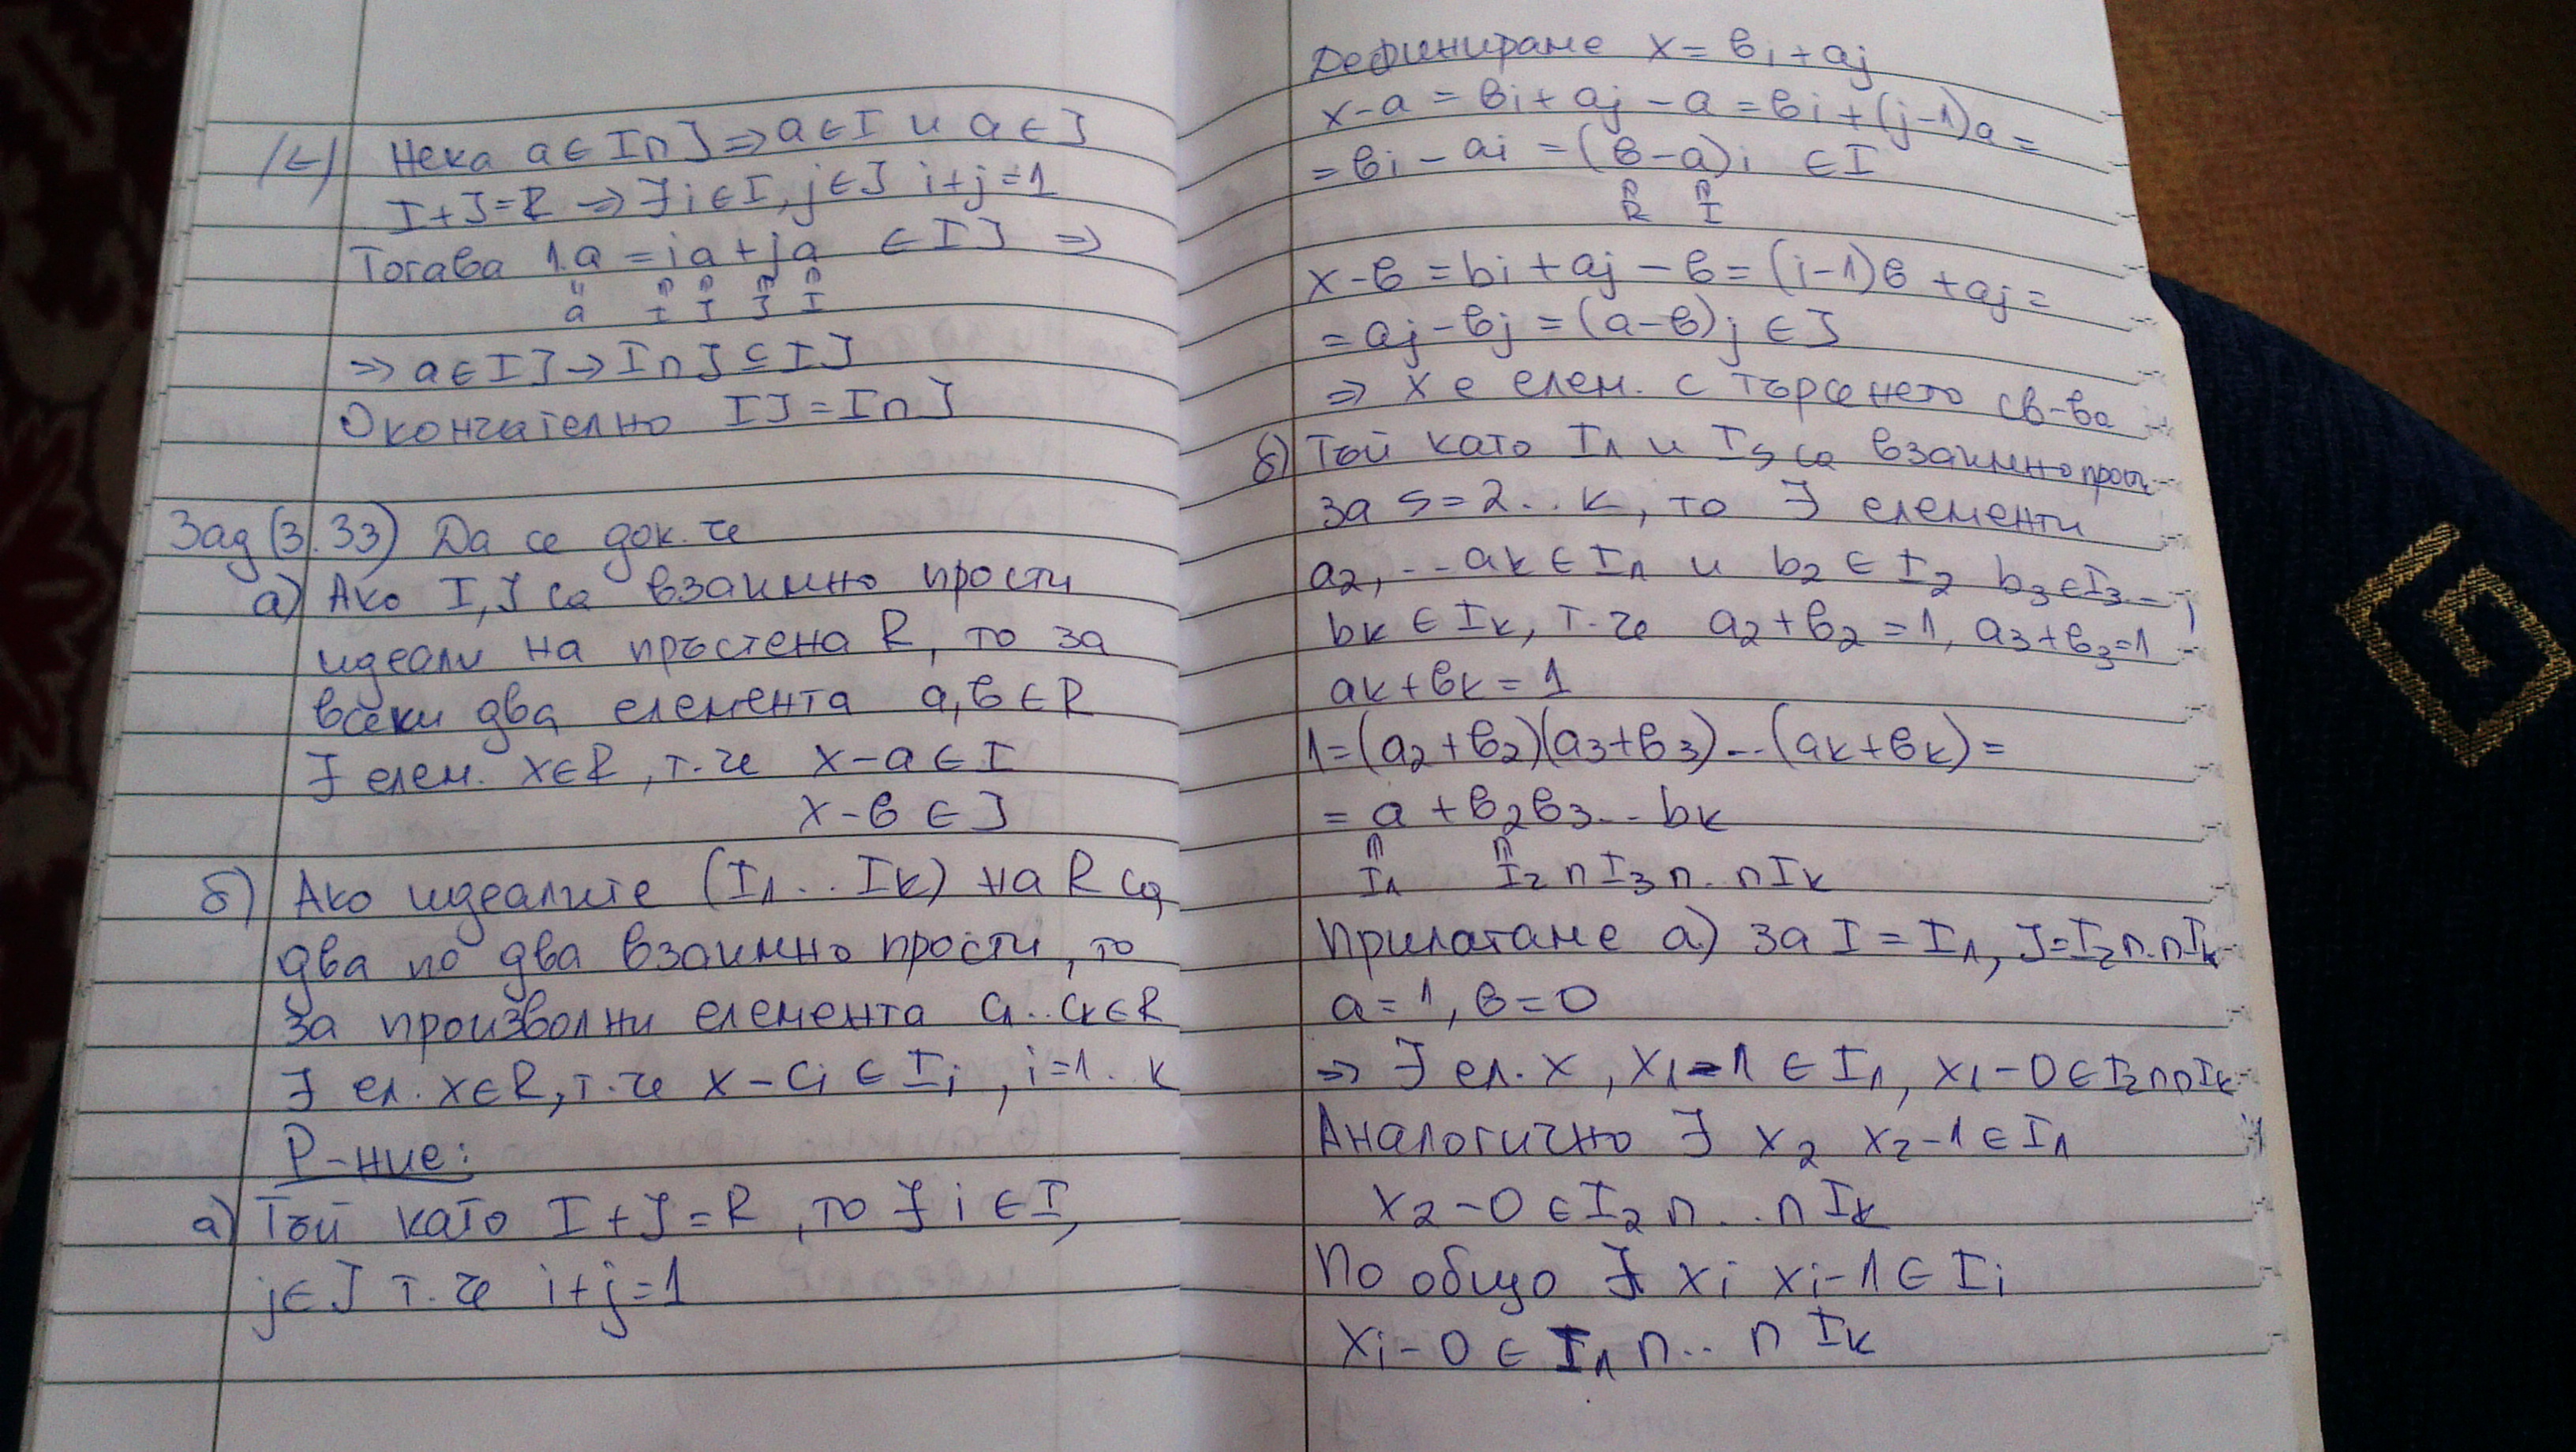 /⊆/ Нека a ∈ I∩J ⇒ a ∈ I и a ∈ J
I+J=R ⇒ ∃ i ∈ I, j ∈ J i+j=1
Тогава 1.a = ia + ja ∈ IJ ⇒
a I I J I
⇒ a ∈ IJ → I∩J ⊆ IJ
Окончателно IJ = I∩J
Зад (3.33) Да се док. че
а) Ако I, J са взаимно прости
идеали на пръстена R, то за
всеки два елемента a, в ∈ R
∃ елем. x∈R, т.че x-a ∈ I
x-в ∈ J
б) Ако идеалите (I1 .. Ik) на R са
два по два взаимно прости, то
за произволни елемента c1..ck∈R
∃ ел. x∈R, т.че x-ci ∈ Ii, i=1..k
Р-ние:
а) Тъй като I+J=R, то ∃ i ∈ I,
j∈J т.че i+j=1
Дефинираме x = вi + aj
x-a = вi + aj - a = вi + (j-1)a =
= вi - ai = (в-a)i ∈ I
R I
x-в = bi + aj - в = (i-1)в + aj =
= aj - вj = (a-в)j ∈ J
⇒ x е елем. с търсенето св-во
б) Тъй като I1 и Is са взаимно прости
за s=2..k, то ∃ елементи
a2, ... ak ∈ I1 и b2 ∈ I2 b3 ∈ I3 ... ,
bk ∈ Ik, т.че a2+в2 = 1, a3+в3=1
ak+вk = 1
1=(a2+в2)(a3+в3)...(ak+вk) =
= a + в2в3...bk
I1 I2∩I3∩..∩Ik
Прилагаме а) за I = I1, J=I2∩..∩Ik
a=1, в=0
⇒ ∃ ел. x, x1-1 ∈ I1, x1-0 ∈ I2∩∩Ik
Аналогично ∃ x2 x2-1 ∈ I1
x2-0 ∈ I2 ∩...∩ Ik
По общо ∃ xi xi-1 ∈ Ii
xi-0 ∈ I1 ∩.. ∩ Ik